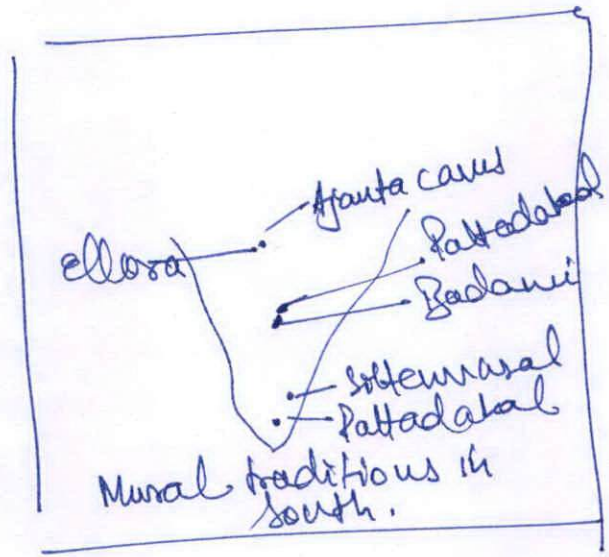 Ajanta caves
Ellora
Pattadakal
Badami
Sittennasal
Pattadakal
Mural traditions in
South.